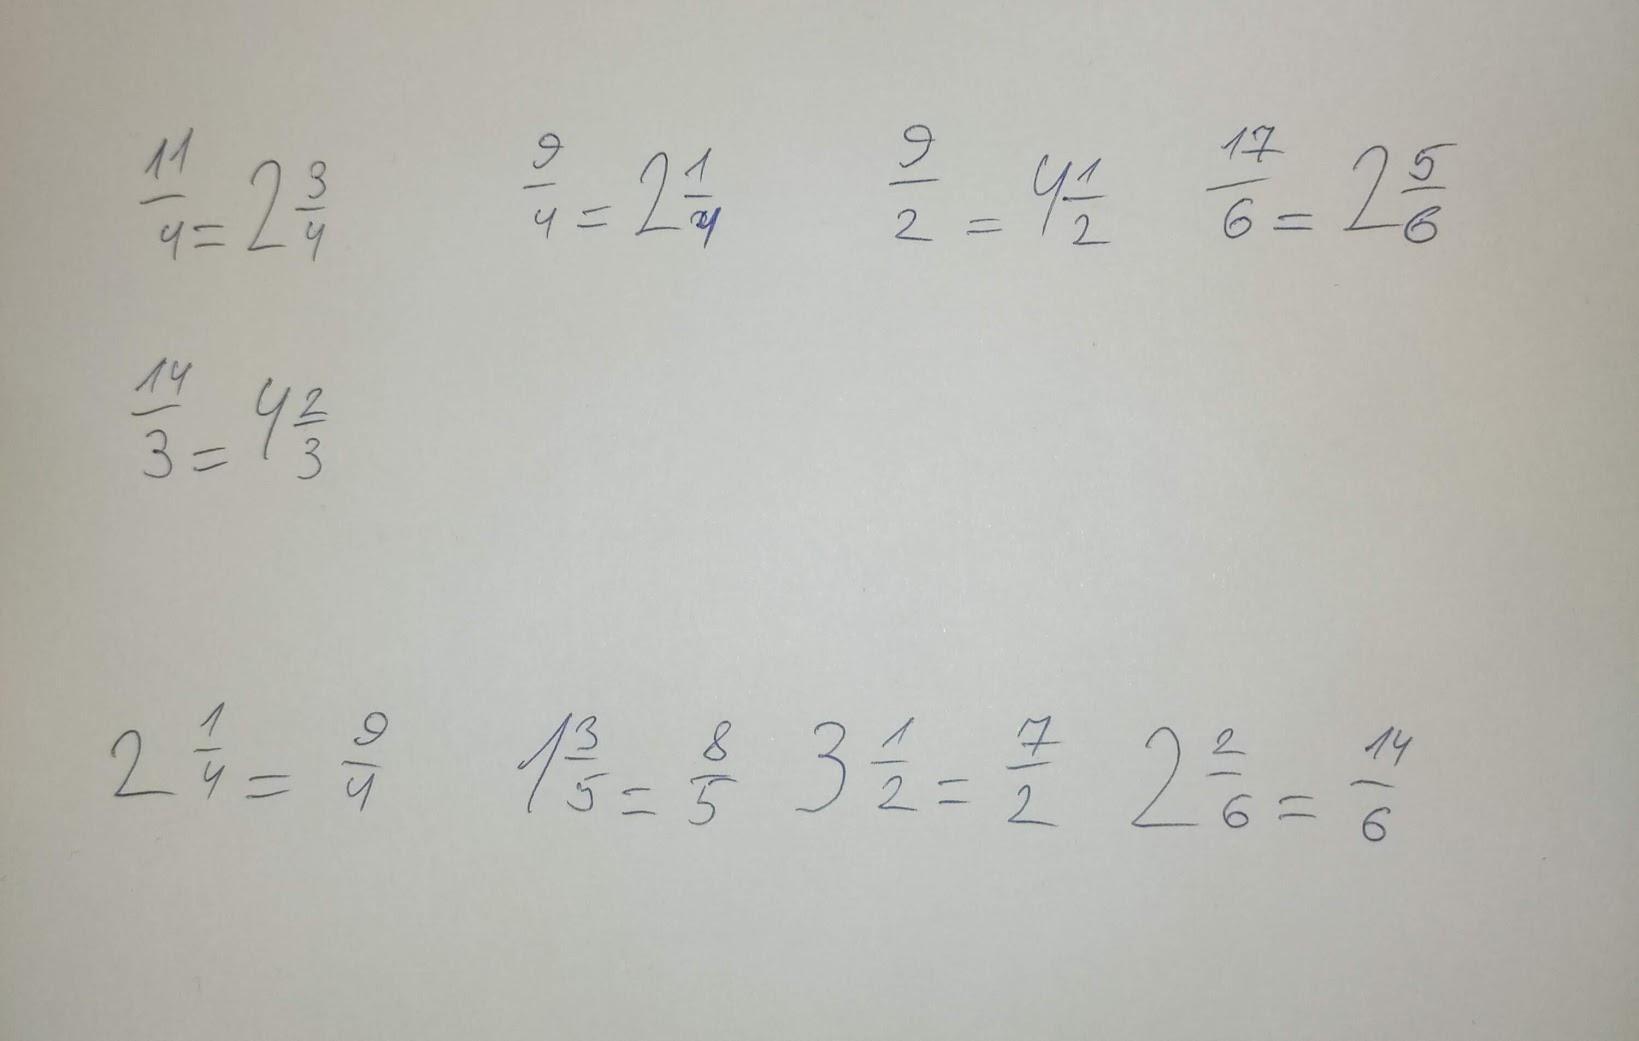 11/4 = 2 3/4 9/4 = 2 1/4 9/2 = 4 1/2 17/6 = 2 5/6
14/3 = 4 2/3
2 1/4 = 9/4 1 3/5 = 8/5 3 1/2 = 7/2 2 2/6 = 14/6